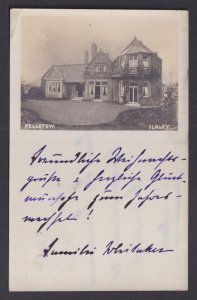 FELLSTOW ILKLEY
Freundliche Weihnachts-
grüße & herzliche Glück-
wünsche zum Jahres-
wechsel!
Familie Whitaker